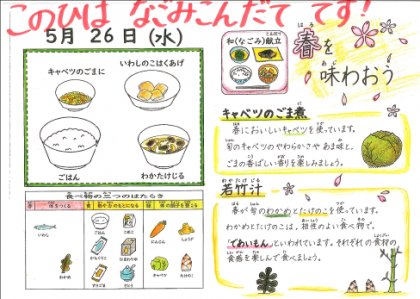 このひは なごみこんだて です!
5月 26日 (水)
キャベツのごまに
いわしのこはくあげ
ごはん
わかたけじる
食べ物の三つのはたらき
いわし
わかめ
にんじん
しょうが
和(なごみ)献立
春を
味わおう
キャベツのごま煮
春においしいキャベツを使っています。
旬のキャベツのやわらかさや あま味と、
ごまの香ばしい香りを楽しみましょう。
若竹汁
春が旬のわかめとたけのこを使っています。
わかめとたけのこは、相性のよい食べ物で、
「であいもん」といわれています。それぞれの食材の
食感を楽しんで食べましょう。